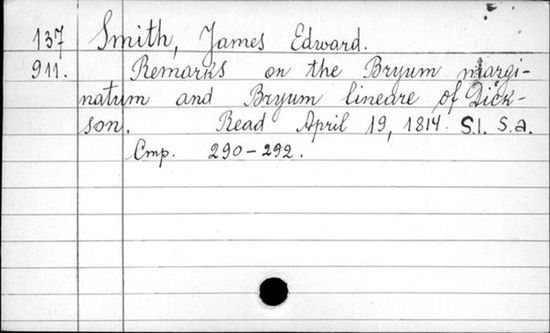 137 Smith, James Edward.
911. Remarks on the Bryum margi-
natum and Bryum lineare of Dick-
son. Read April 19, 1814. S.l. S.a.
Cmp. 290-292.